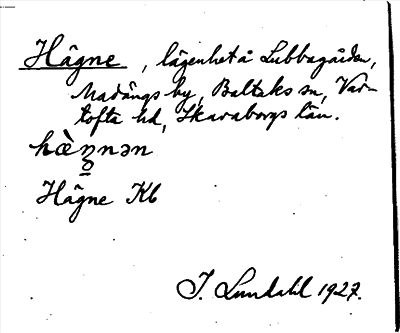 Hägne, lägenhet å Lubbagården,
Madängs by, Baltaks sn, Var-
tofta hd, Skaraborgs län.
Hägne Kb
I. Lundahl 1927.